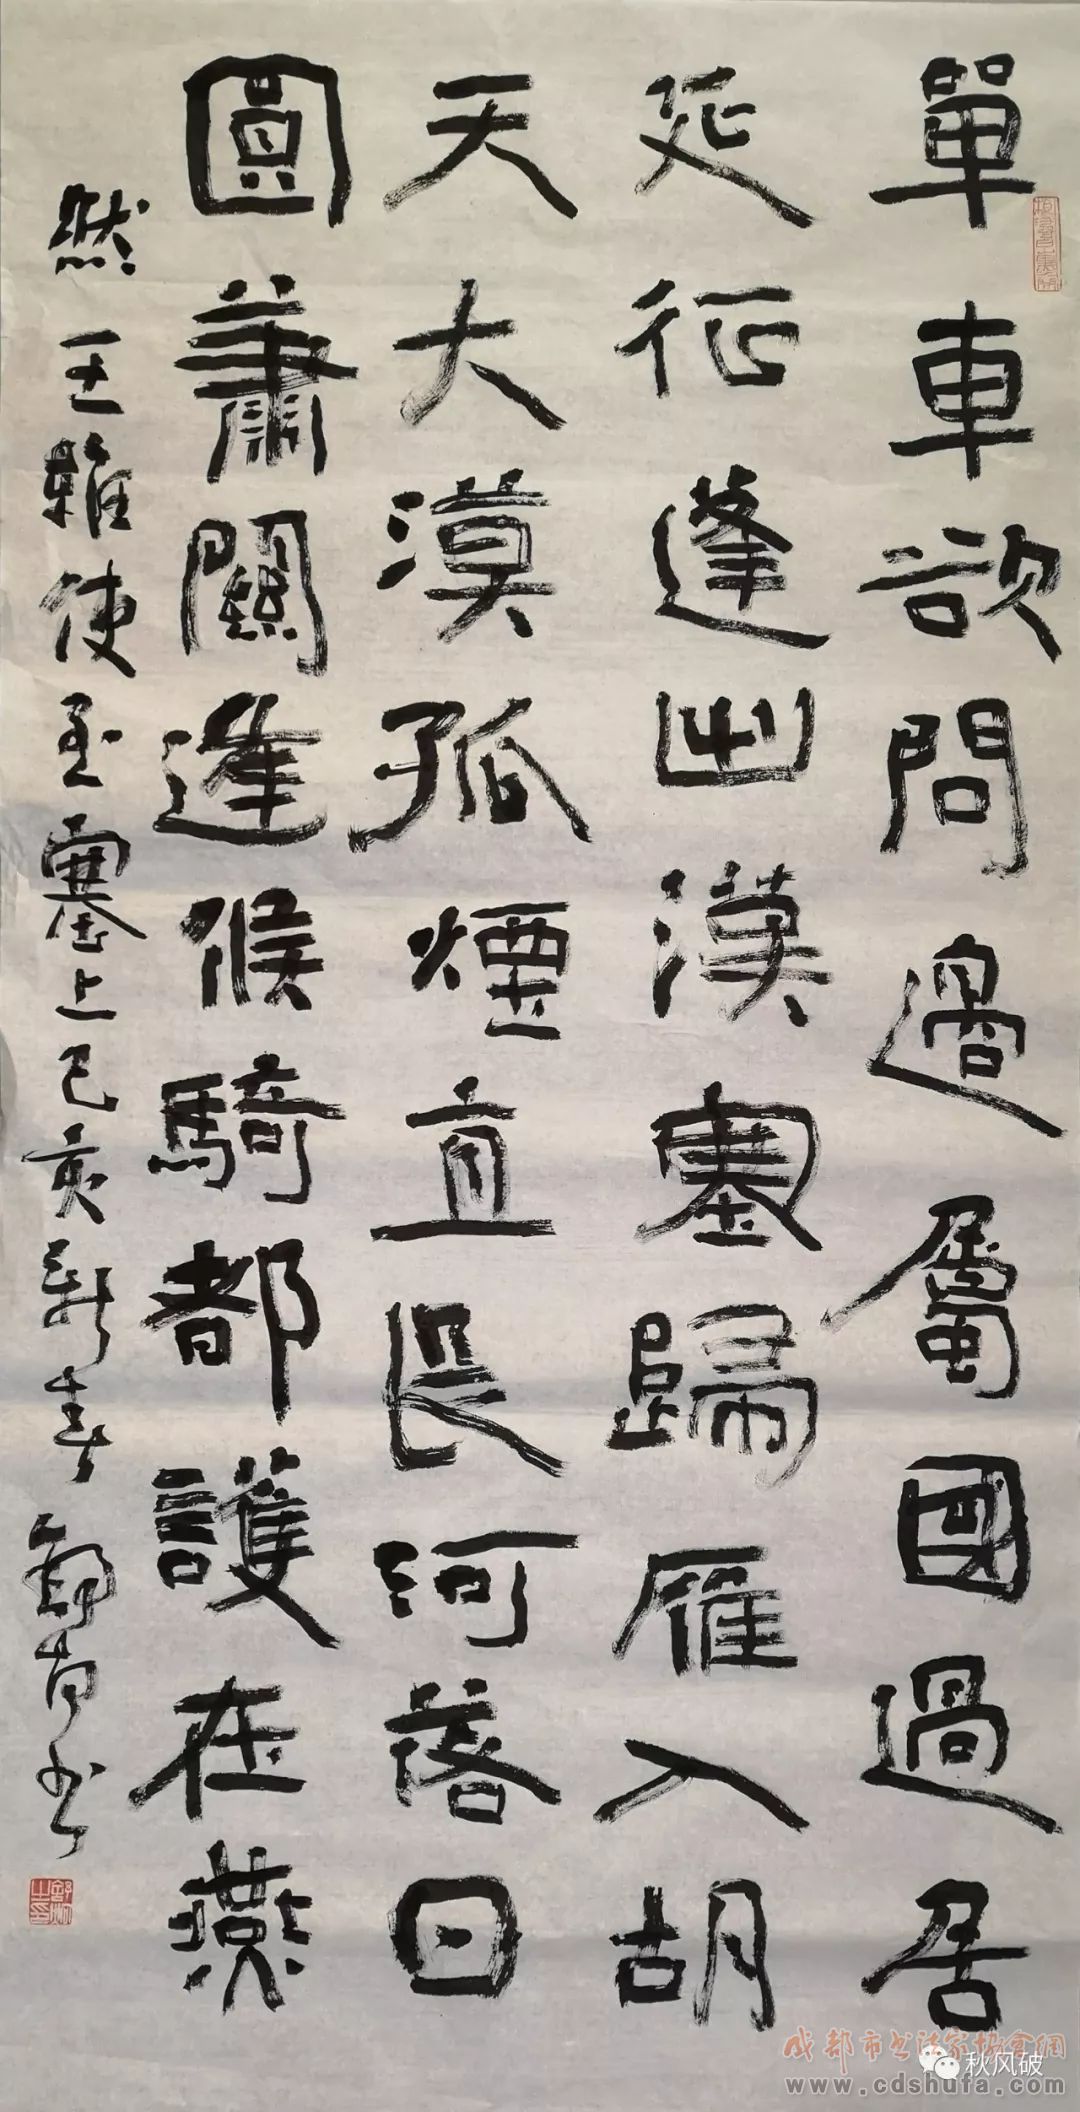 單車欲問邊屬國過居
延征蓬出漢塞歸雁入胡
天大漠孤煙直長河落日
圓蕭關逢候騎都護在燕
然 王維使至塞上己亥新春 书
成都市书法家協會網
秋风破
www.cdshufa.com